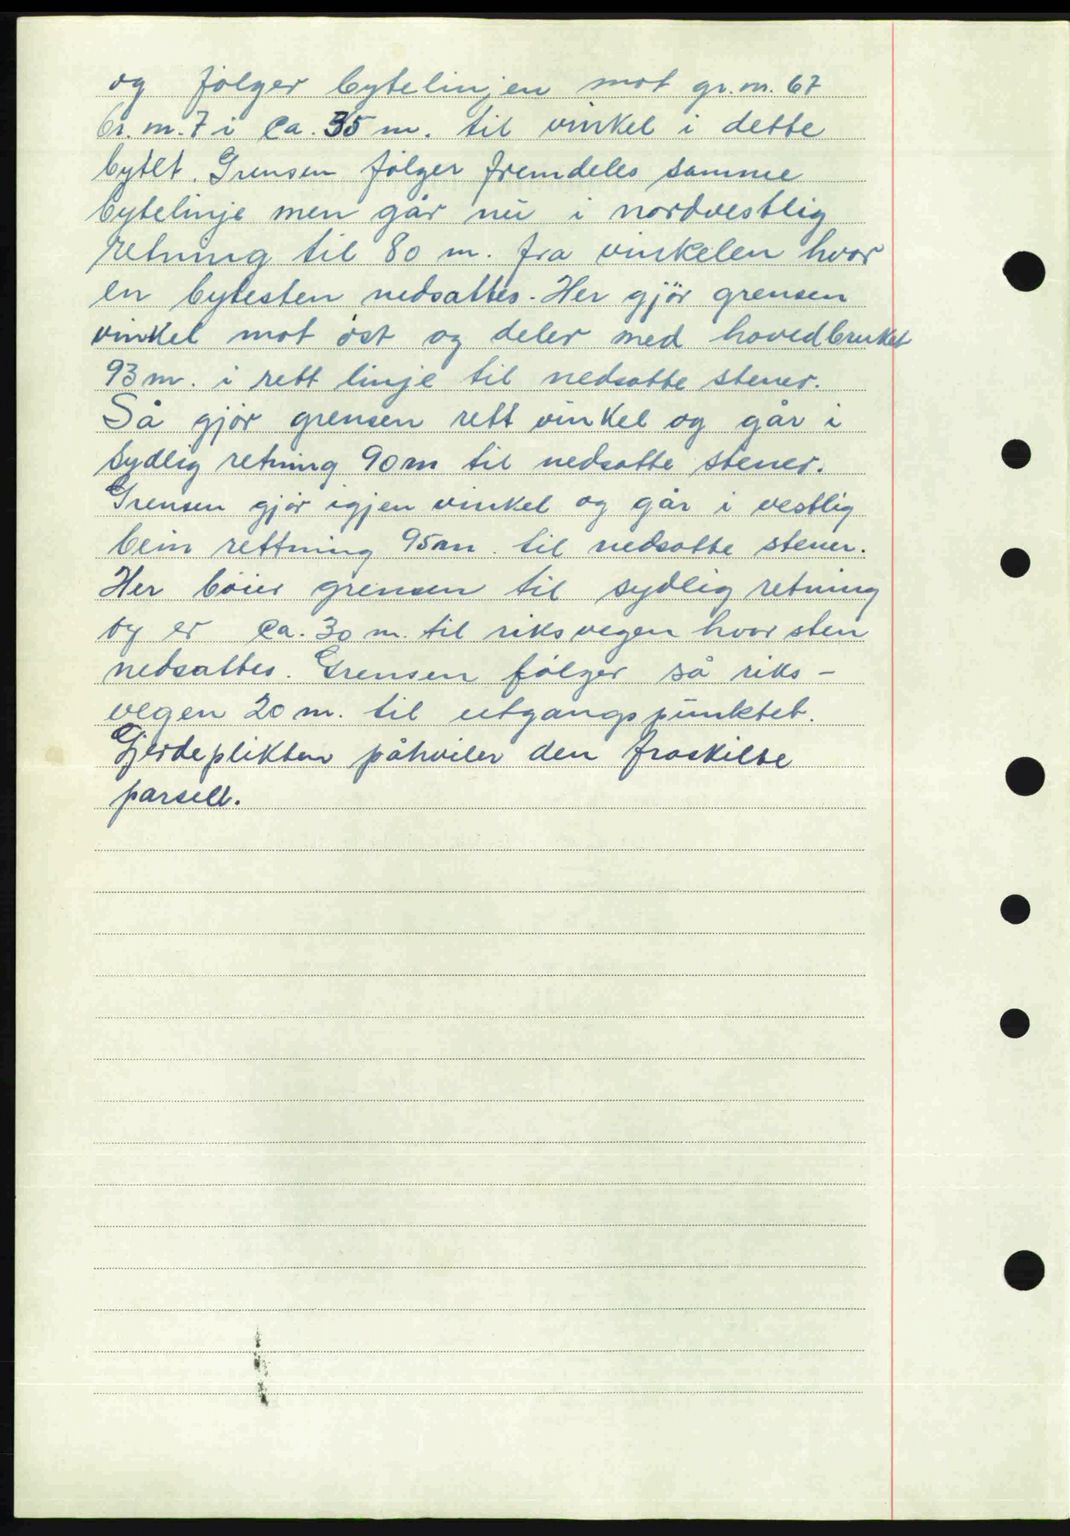 og følger bytelinjen mot gr. nr. 67
br. nr. 7 i ca. 35 m. til vinkel i dette
bytet. Grensen følger fremdeles samme
bytelinje men går nu i nordvestlig
retning til 80 m. fra vinkelen hvor
en bytesten nedsattes. Her gjør grensen
vinkel mot øst og deler med hovedbruket
93 m. i rett linje til nedsatte stener.
Så gjør grensen rett vinkel og går i
sydlig retning 90 m til nedsatte stener.
Grensen gjør igjen vinkel og går i vestlig
bein rettning 95 m. til nedsatte stener.
Her bøier grensen til sydlig retning
og er ca. 30 m. til riksvegen hvor sten
nedsattes. Grensen følger så riks-
vegen 20 m. til utgangspunktet.
Gjerdeplikten påhviler den fraskilte
parsell.